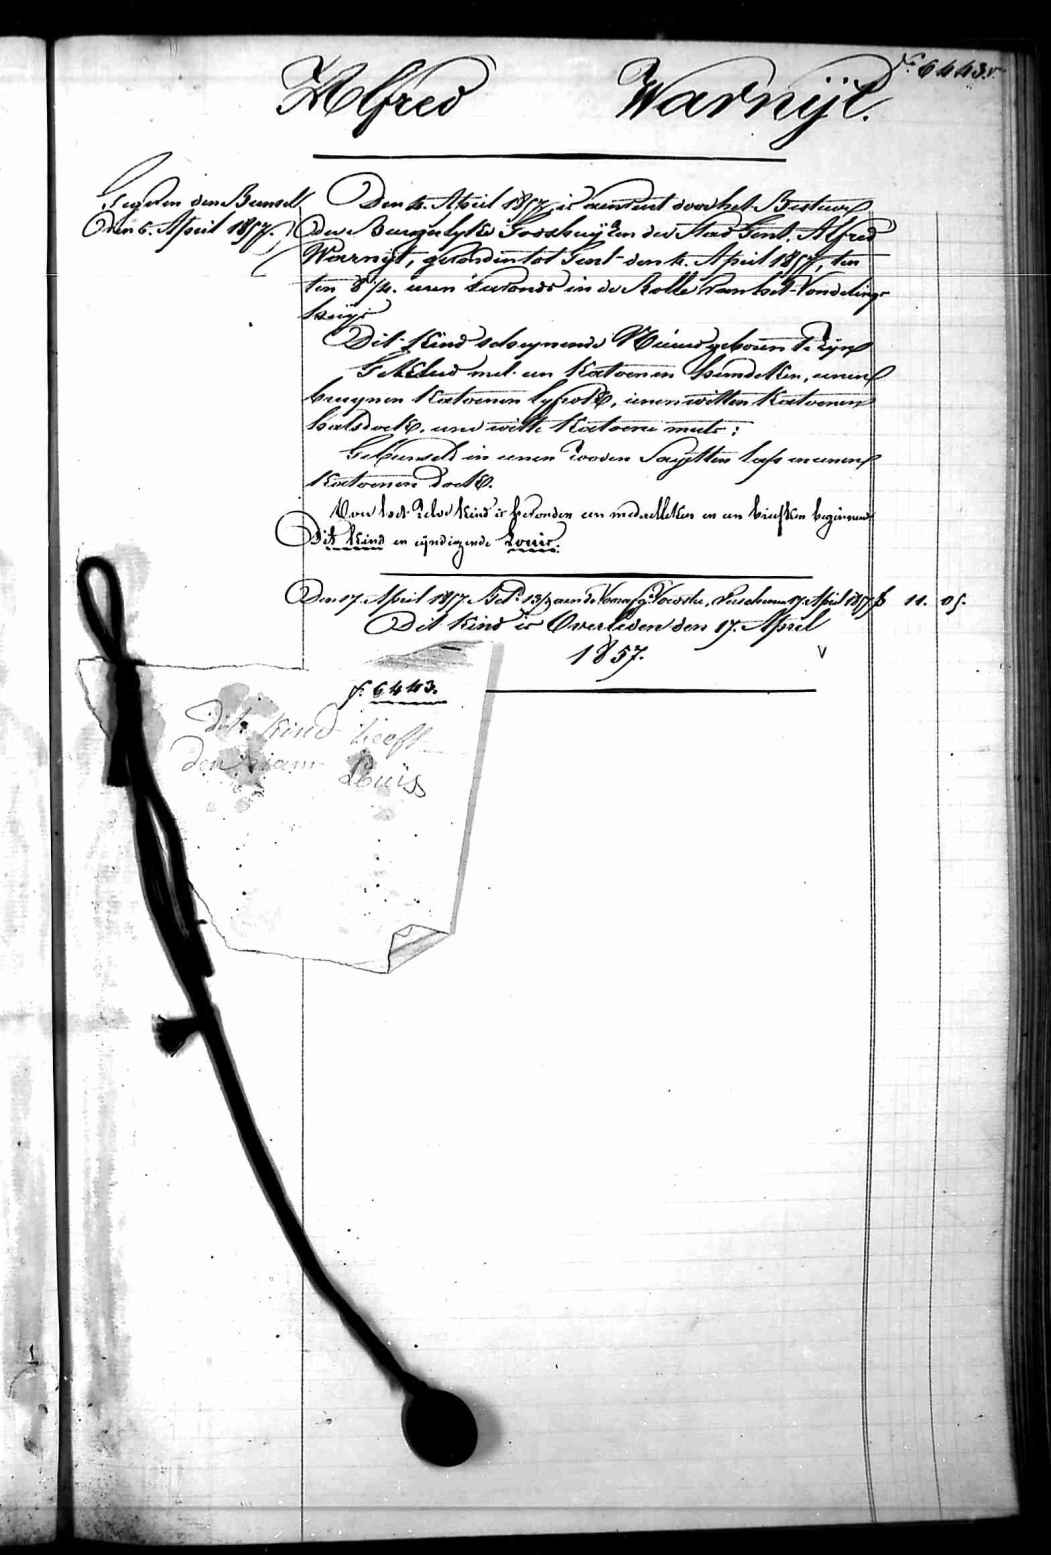 N.º 6443.
Alfred Warnijt.
Gegeven den Bunsel
den 6. April 1857.
Den 4. April 1857, is aenveird door het Bestuer
der Burgerlyke Godshuijzen der Stad Gent, Alfred
Warnijt, gevonden tot Gent den 4. April 1857, ten
ten 8 1/2. uren s'avonds in de Rolle van het Vondelings
huijs
Dit kind scheynende Nieuw geboren te zyn
Gekleed met een Katoenen hemdeken, eenen
bruynen Katoenen lyfrok, eenen witten Katoenen
halsdoek, eene witte Katoene muts;
Gebunseld in eenen rooden Sayetten laps en eenen
Katoenen doek.
Voor het zelve kind is gevonden een medaelleken en een briefken beginnende
Dit kind en eyndigende Louis.
Den 17. April 1857 Get. 13 17. April 1857 11. 05.
Dit kind is Overleden den 17. April
1857.
N.º 6443.
dit kind heeft
den naam Louiss